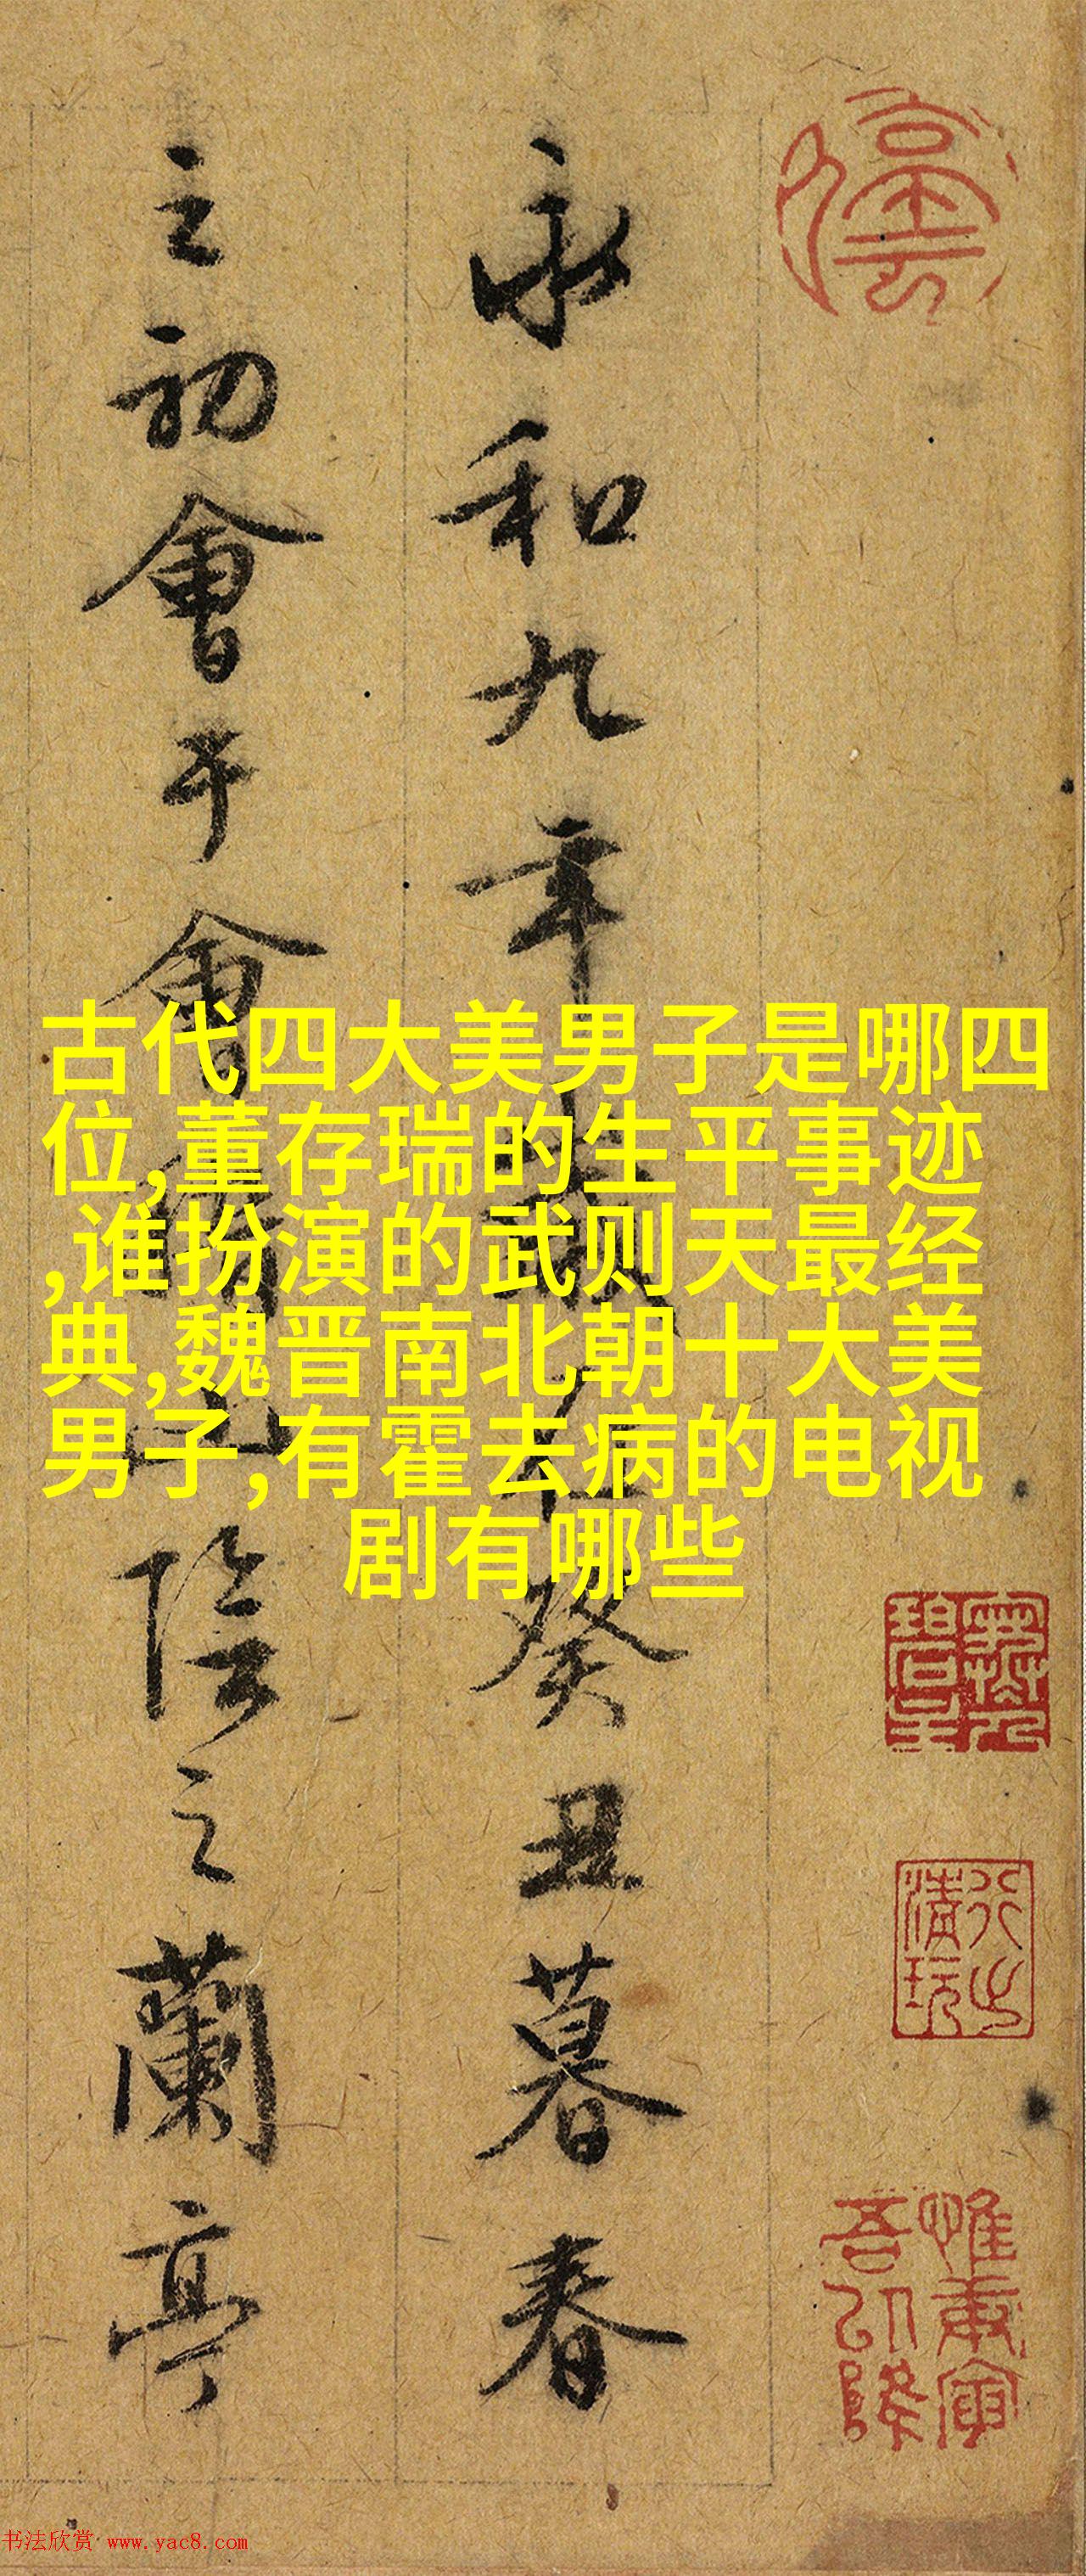 永和九年歲在癸丑暮春
之初會于會稽山陰之蘭亭
古代四大美男子是哪四
位,董存瑞的生平事迹
,谁扮演的武则天最经
典,魏晋南北朝十大美
男子,有霍去病的电视
剧有哪些
惟庚寅
吾以降
书法欣赏 www.yac8.com